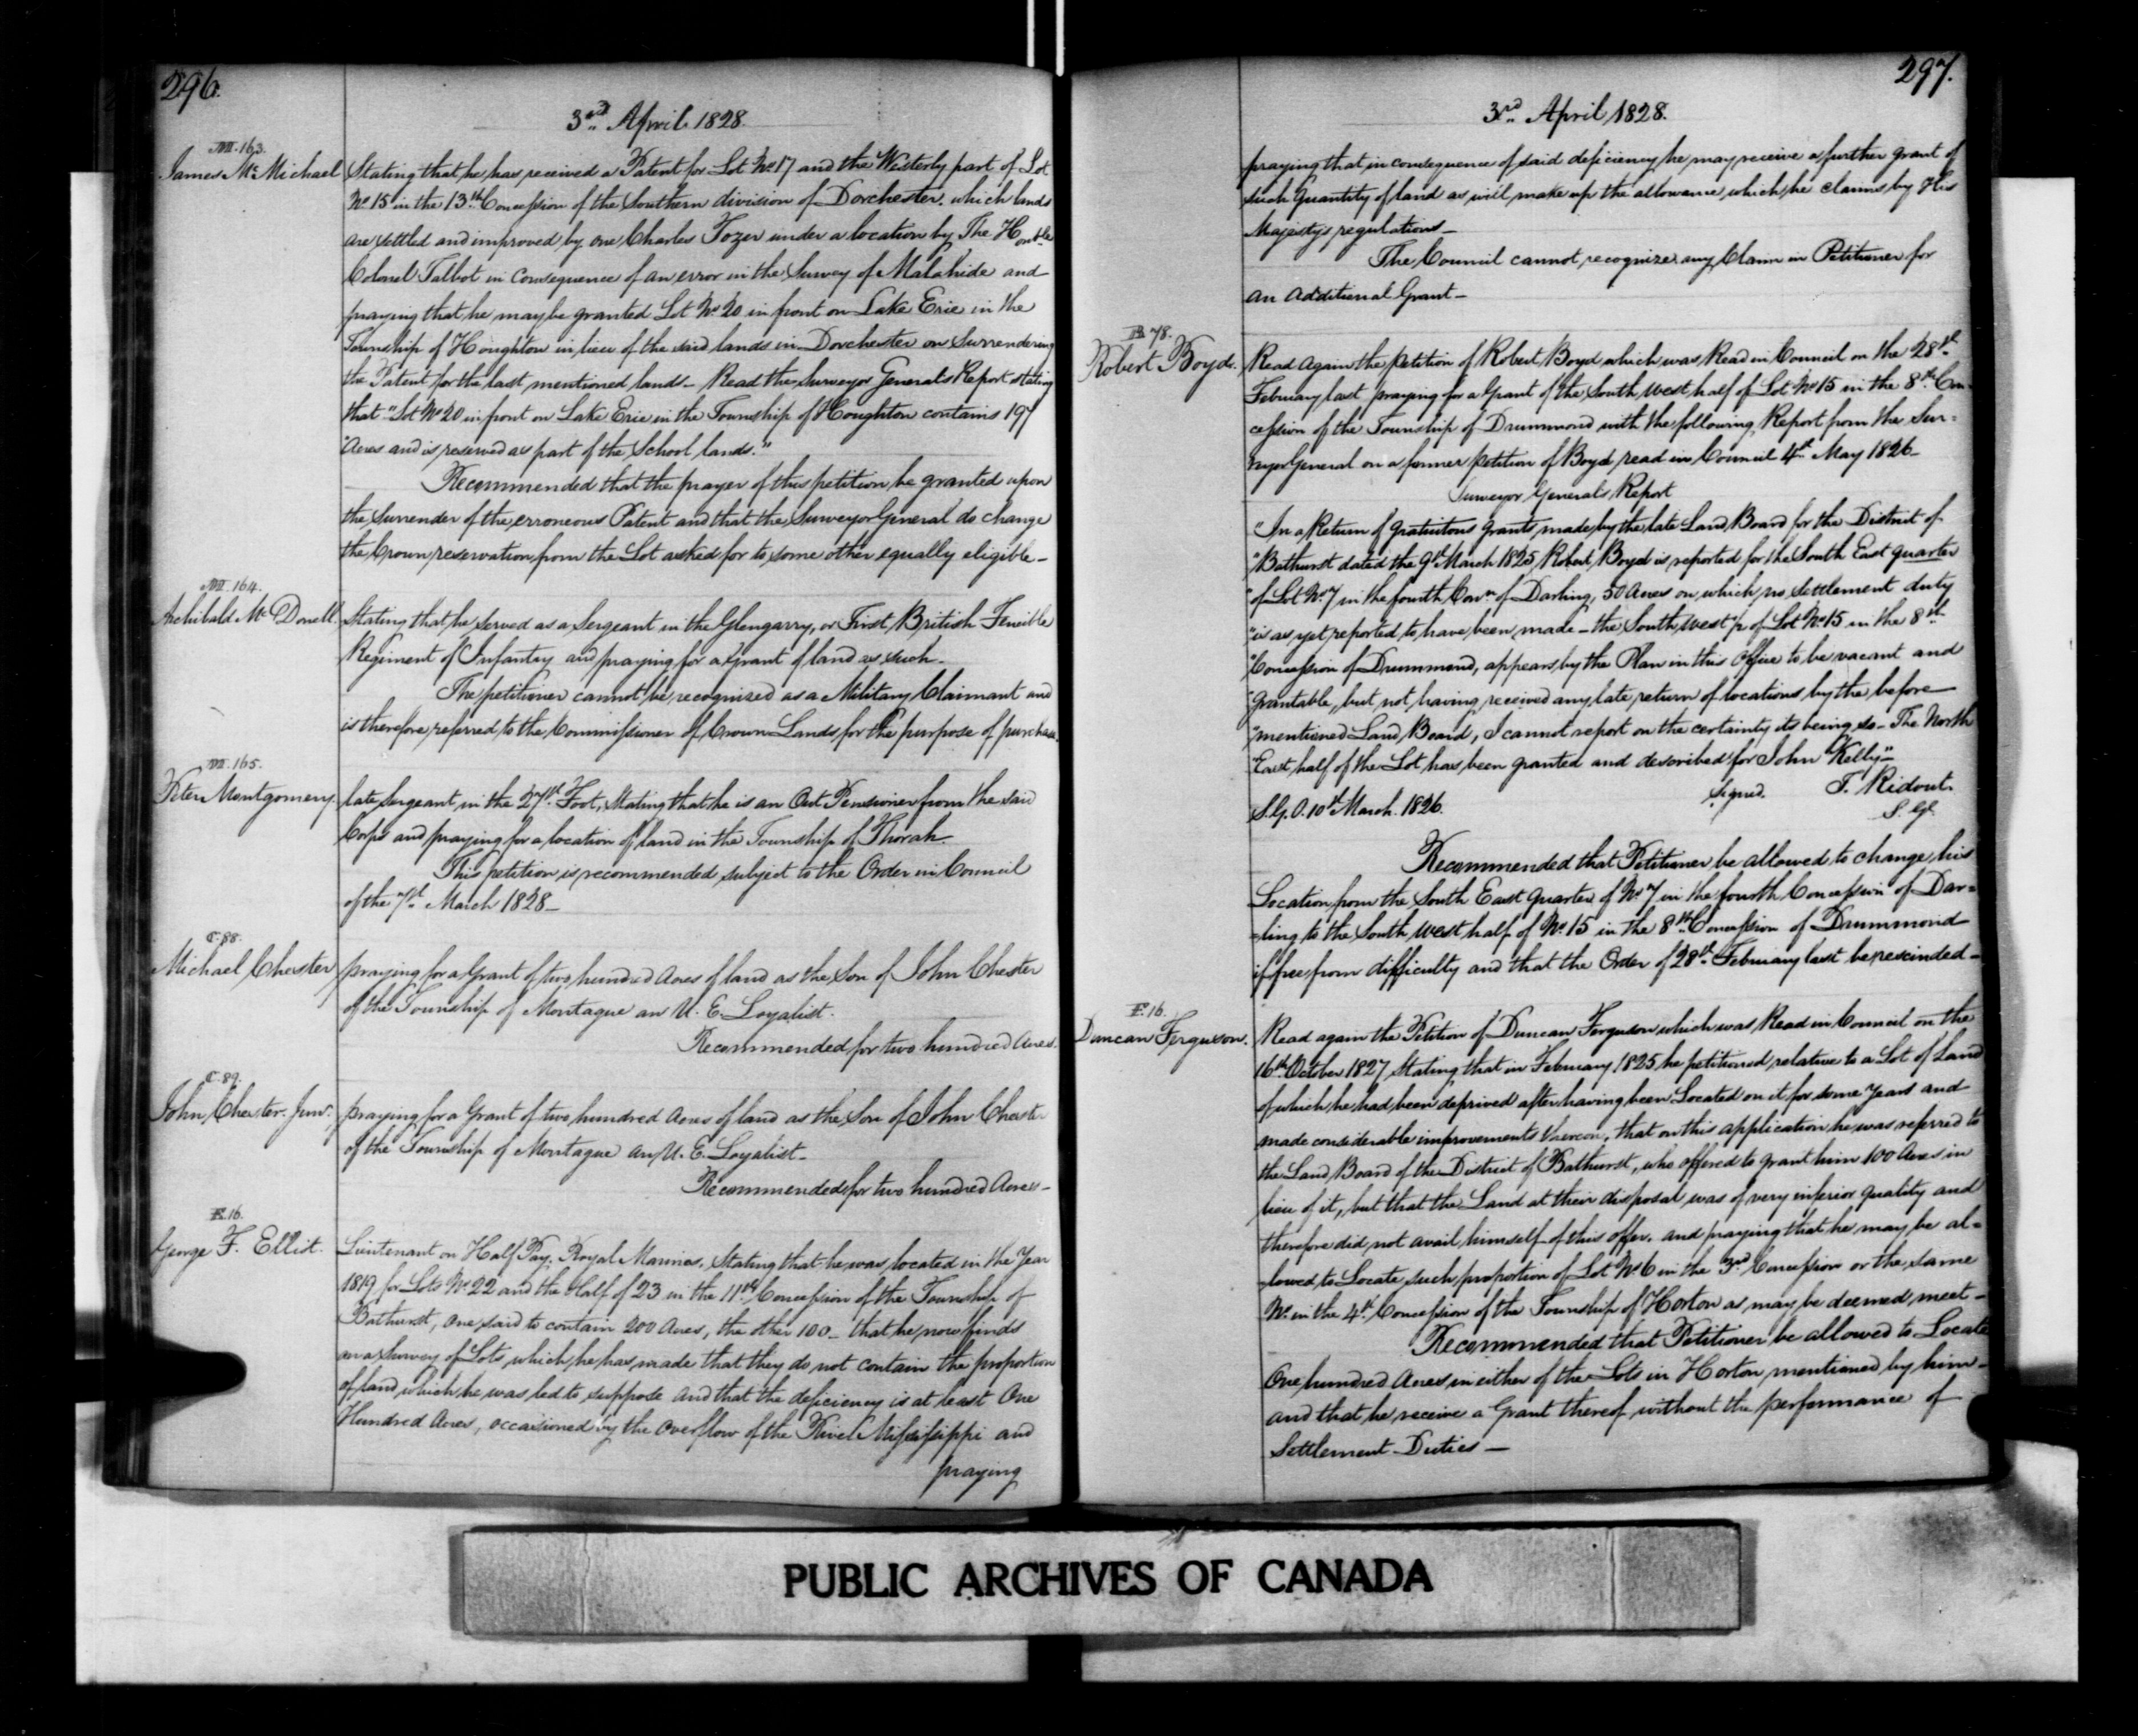 296.
3rd April 1828.
M. 163.
James Mc Michael
Stating that he has received a Patent for Lot No 17 and the Westerly part of Lot
No 15 in the 13th Concession of the Southern division of Dorchester. which lands
are settled and improved by one Charles Tozer under a location by The Honble
Colonel Talbot in consequence of an error in the Survey of Malahide and
praying that he may be granted Lot No 20 in front on Lake Erie in the
Township of Houghton in lieu of the said lands in Dorchester on Surrendering
the Patent for the last mentioned lands - Read the Surveyor Generals Report stating
that "Lot No 20 in front on Lake Erie in the Township of Houghton contains 197
"Acres and is reserved as part of the School lands."
Recommended that the prayer of this petition be granted upon
the Surrender of the erroneous Patent and that the Surveyor General do change
the Crown reservation from the Lot asked for to some other equally eligible -
M. 164.
Archibald Mc Donell.
Stating that he served as a Sergeant in the Glengarry, or First British Fencible
Regiment of Infantry and praying for a Grant of land as such -
The petitioner cannot be recognized as a Military Claimant and
is therefore referred to the Commissioner of Crown Lands for the purpose of purchase.
M. 165.
Peter Montgomery
late Sergeant in the 27th Foot, Stating that he is an Out Pensioner from the said
Corps and praying for a location of land in the Township of Thorah.
This petition is recommended subject to the Order in Council
of the 7th March 1828 -
C. 88.
Michael Chester
praying for a Grant of two hundred Acres of land as the Son of John Chester
of the Township of Montague an U. E. Loyalist.
Recommended for two hundred Acres.
C. 89.
John Chester Junr.
praying for a Grant of two hundred Acres of land as the Son of John Chester
of the Township of Montague an U. E. Loyalist -
Recommended for two hundred Acres -
E. 16.
George F. Elliot.
Lieutenant on Half Pay. Royal Marines. Stating that he was located in the Year
1819 for Lots No 22 and the Half of 23 in the 11th Concession of the Township of
Bathurst, one said to contain 200 Acres, the other 100 - that he now finds
on a Survey of Lots which he has made that they do not contain the proportion
of land which he was led to suppose and that the deficiency is at least One
Hundred Acres, occasioned by the overflow of the River Missisippi and
praying
297.
3rd April 1828.
praying that in consequence of said deficiency he may receive a further Grant of
such Quantity of land as will make up the allowance which he claims by His
Majesty's regulations -
The Council cannot recognize any Claim in Petitioner for
an additional Grant -
B. 78.
Robert Boyd.
Read Again the petition of Robert Boyd which was Read in Council on the 28th
February last praying for a Grant of the South West half of Lot No 15 in the 8th Con-
cession of the Township of Drummond with the following Report from the Sur=
veyor General on a former petition of Boyd read in Council 4th May 1826 -
Surveyor Generals Report
"In a Return of Gratuitous Grants made by the late Land Board for the District of
"Bathurst dated the 9th March 1825, Robert Boyd is reported for the South East quarter
"of Lot No 7 in the fourth Conn of Darling, 50 Acres on which no settlement duty
"is as yet reported to have been made - the South West ½ of Lot No 15 in the 8th
"Concession of Drummond, appears by the Plan in this Office to be vacant and
"grantable, but not having received any late return of locations by the before
"mentioned Land Board, I cannot report on the certainty its being so - The North
East half of the Lot has been granted and described for John Kelly"
Signed. T. Ridout.
S. G. O. 10th March. 1826. S. G.
Recommended that Petitioner be allowed to change his
Location from the South East Quarter of No 7 in the fourth Concession of Dar=
=ling to the South West half of No 15 in the 8th Concession of Drummond
if free from difficulty and that the Order of 28th February last be rescinded -
F. 16.
Duncan Ferguson.
Read again the Petition of Duncan Ferguson which was Read in Council on the
16th October 1827 Stating that in February 1825 he petitioned relative to a Lot of Land
of which he had been deprived after having been Located on it for some Years and
made considerable improvements thereon, that on this application he was referred to
the Land Board of the District of Bathurst, who offered to grant him 100 Acres in
lieu of it, but that the Land at their disposal was of very inferior quality and
therefore did not avail himself of this offer. and praying that he may be al=
=lowed to Locate such proportion of Lot No 6 in the 3rd Concession or the same
No. in the 4th Concession of the Township of Horton as may be deemed meet -
Recommended that Petitioner be allowed to Locate
One hundred Acres in either of the Lots in Horton mentioned by him -
and that he receive a Grant thereof without the performance of
Settlement Duties -
PUBLIC ARCHIVES OF CANADA